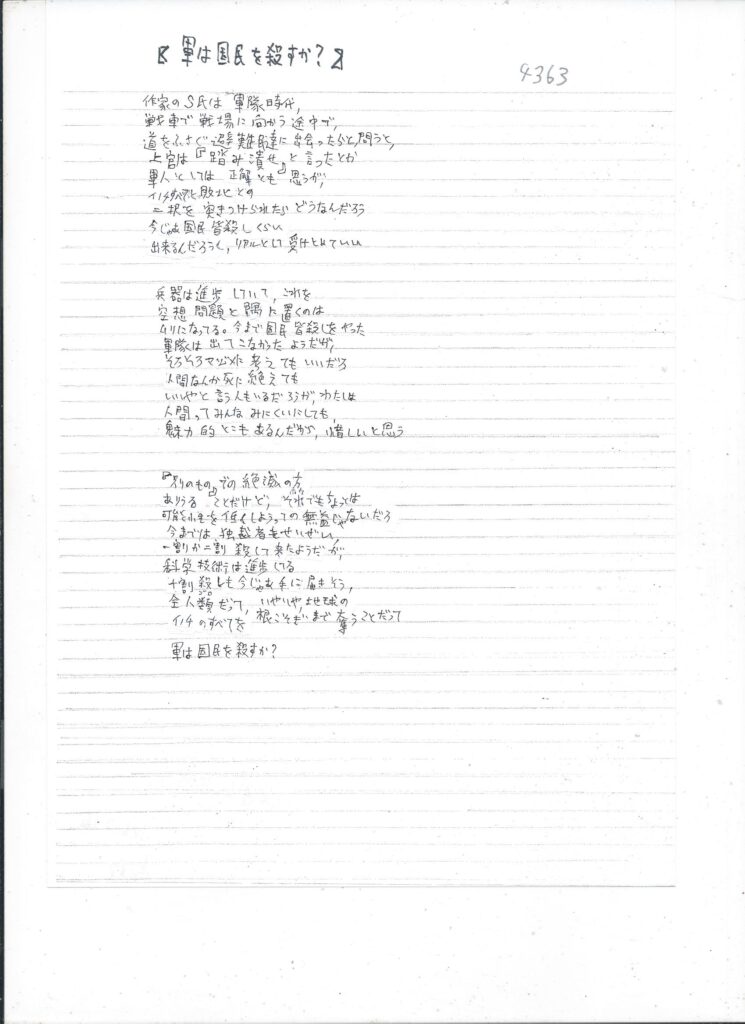 【 軍は国民を殺すか？】
4363
作家のS氏は 軍隊時代,
戦車で 戦場に 向かう 途中で,
道をふさぐ 避難民達に 出会ったらと,問うと,
上官は『踏み潰せ』と 言ったとか
軍人としては 正解とも 思うが,
敗北との
二択を 突きつけられたら どうなんだろう
今じゃあ国民 皆殺しくらい
出来るんだろうし, リアルとして 受けとれていい
兵器は進歩 していて, これを
空想 問題と 隅に 置くのは
ムリになってる。今まで国民 皆殺しをやった
軍隊は 出てこなかった ようだが,
そろそろマジメに 考え てもいいだろ
人間なんか 死に 絶えても
いいやと 言う人もいるだろうが, わたしは
人間ってみんな みにくいにしても,
魅力 的 とこも あるんだから, 惜しいと 思う
『別のもの』での 絶滅の方
ありうる ことだけど, それでもなっては
可能性を 低くしようっての 無益じゃないだろ
今までは 独裁者もせいぜい,
一割か二割 殺して 来たようだが,
科学技術は進歩してる
十割 殺しも 今じゃあ 手に 届きそう,
全人類だって, いやいや, 地球の
イノチのすべてを 根こそぎいまで 奪うことだって
軍は国民を殺すか？